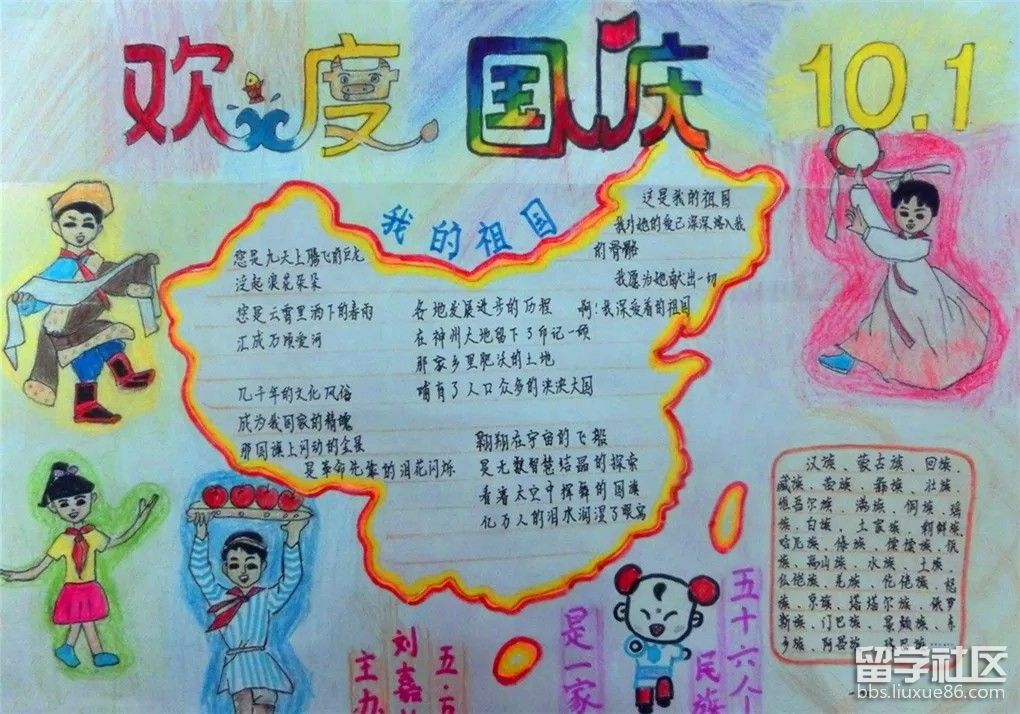 欢度国庆
10.1
我的祖国
您是九天上腾飞的巨龙
泛起浪花朵朵
您是云霄里洒下的春雨
汇成万顷爱河
几千年的文化风俗
成为我国家的精魂
那国旗上闪动的金星
是革命先辈的泪花闪烁
各地发展进步的历程
在神州大地留下了印记一颗
那家乡里肥沃的土地
哺育了人口众多的泱泱大国
翱翔在宇宙的飞船
是无数智慧结晶的探索
看着太空中挥舞的国旗
亿万人的泪水润湿了眼窝
这是我的祖国
我对她的爱已深深熔入我
的骨骼
我愿为她献出一切
啊!我深爱着的祖国
汉族、蒙古族、回族、
藏族、苗族、彝族、壮族、
维吾尔族、满族、侗族、瑶
族、白族、土家族、朝鲜族
哈尼族、傣族、傈僳族、佤
族、高山族、水族、土族、
仫佬族、羌族、仡佬族、
族、京族、塔塔尔族、俄罗
斯族、门巴族、
族、阿昌族、
五十六个
民族
是一家
五.
刘嘉
主办
留学社区
bbs.liuxue86.com